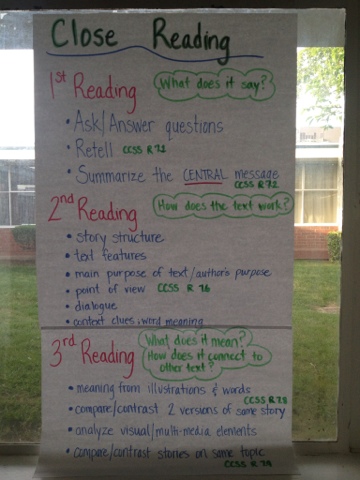 Close Reading
1st Reading What does it say?
• Ask/Answer questions
• Retell CCSS R 7.1
• Summarize the CENTRAL message
CCSS R 7.2
2nd Reading How does the text work?
• story structure
• text features
• main purpose of text/author's purpose
• point of view CCSS R 7.6
• dialogue
• context clues: word meaning
3rd Reading What does it mean?
How does it connect to
other text?
• meaning from illustrations & words
CCSS R 7.8
• compare/contrast 2 versions of same story
• analyze visual/multi-media elements
• compare/contrast stories on same topic
CCSS R 7.9